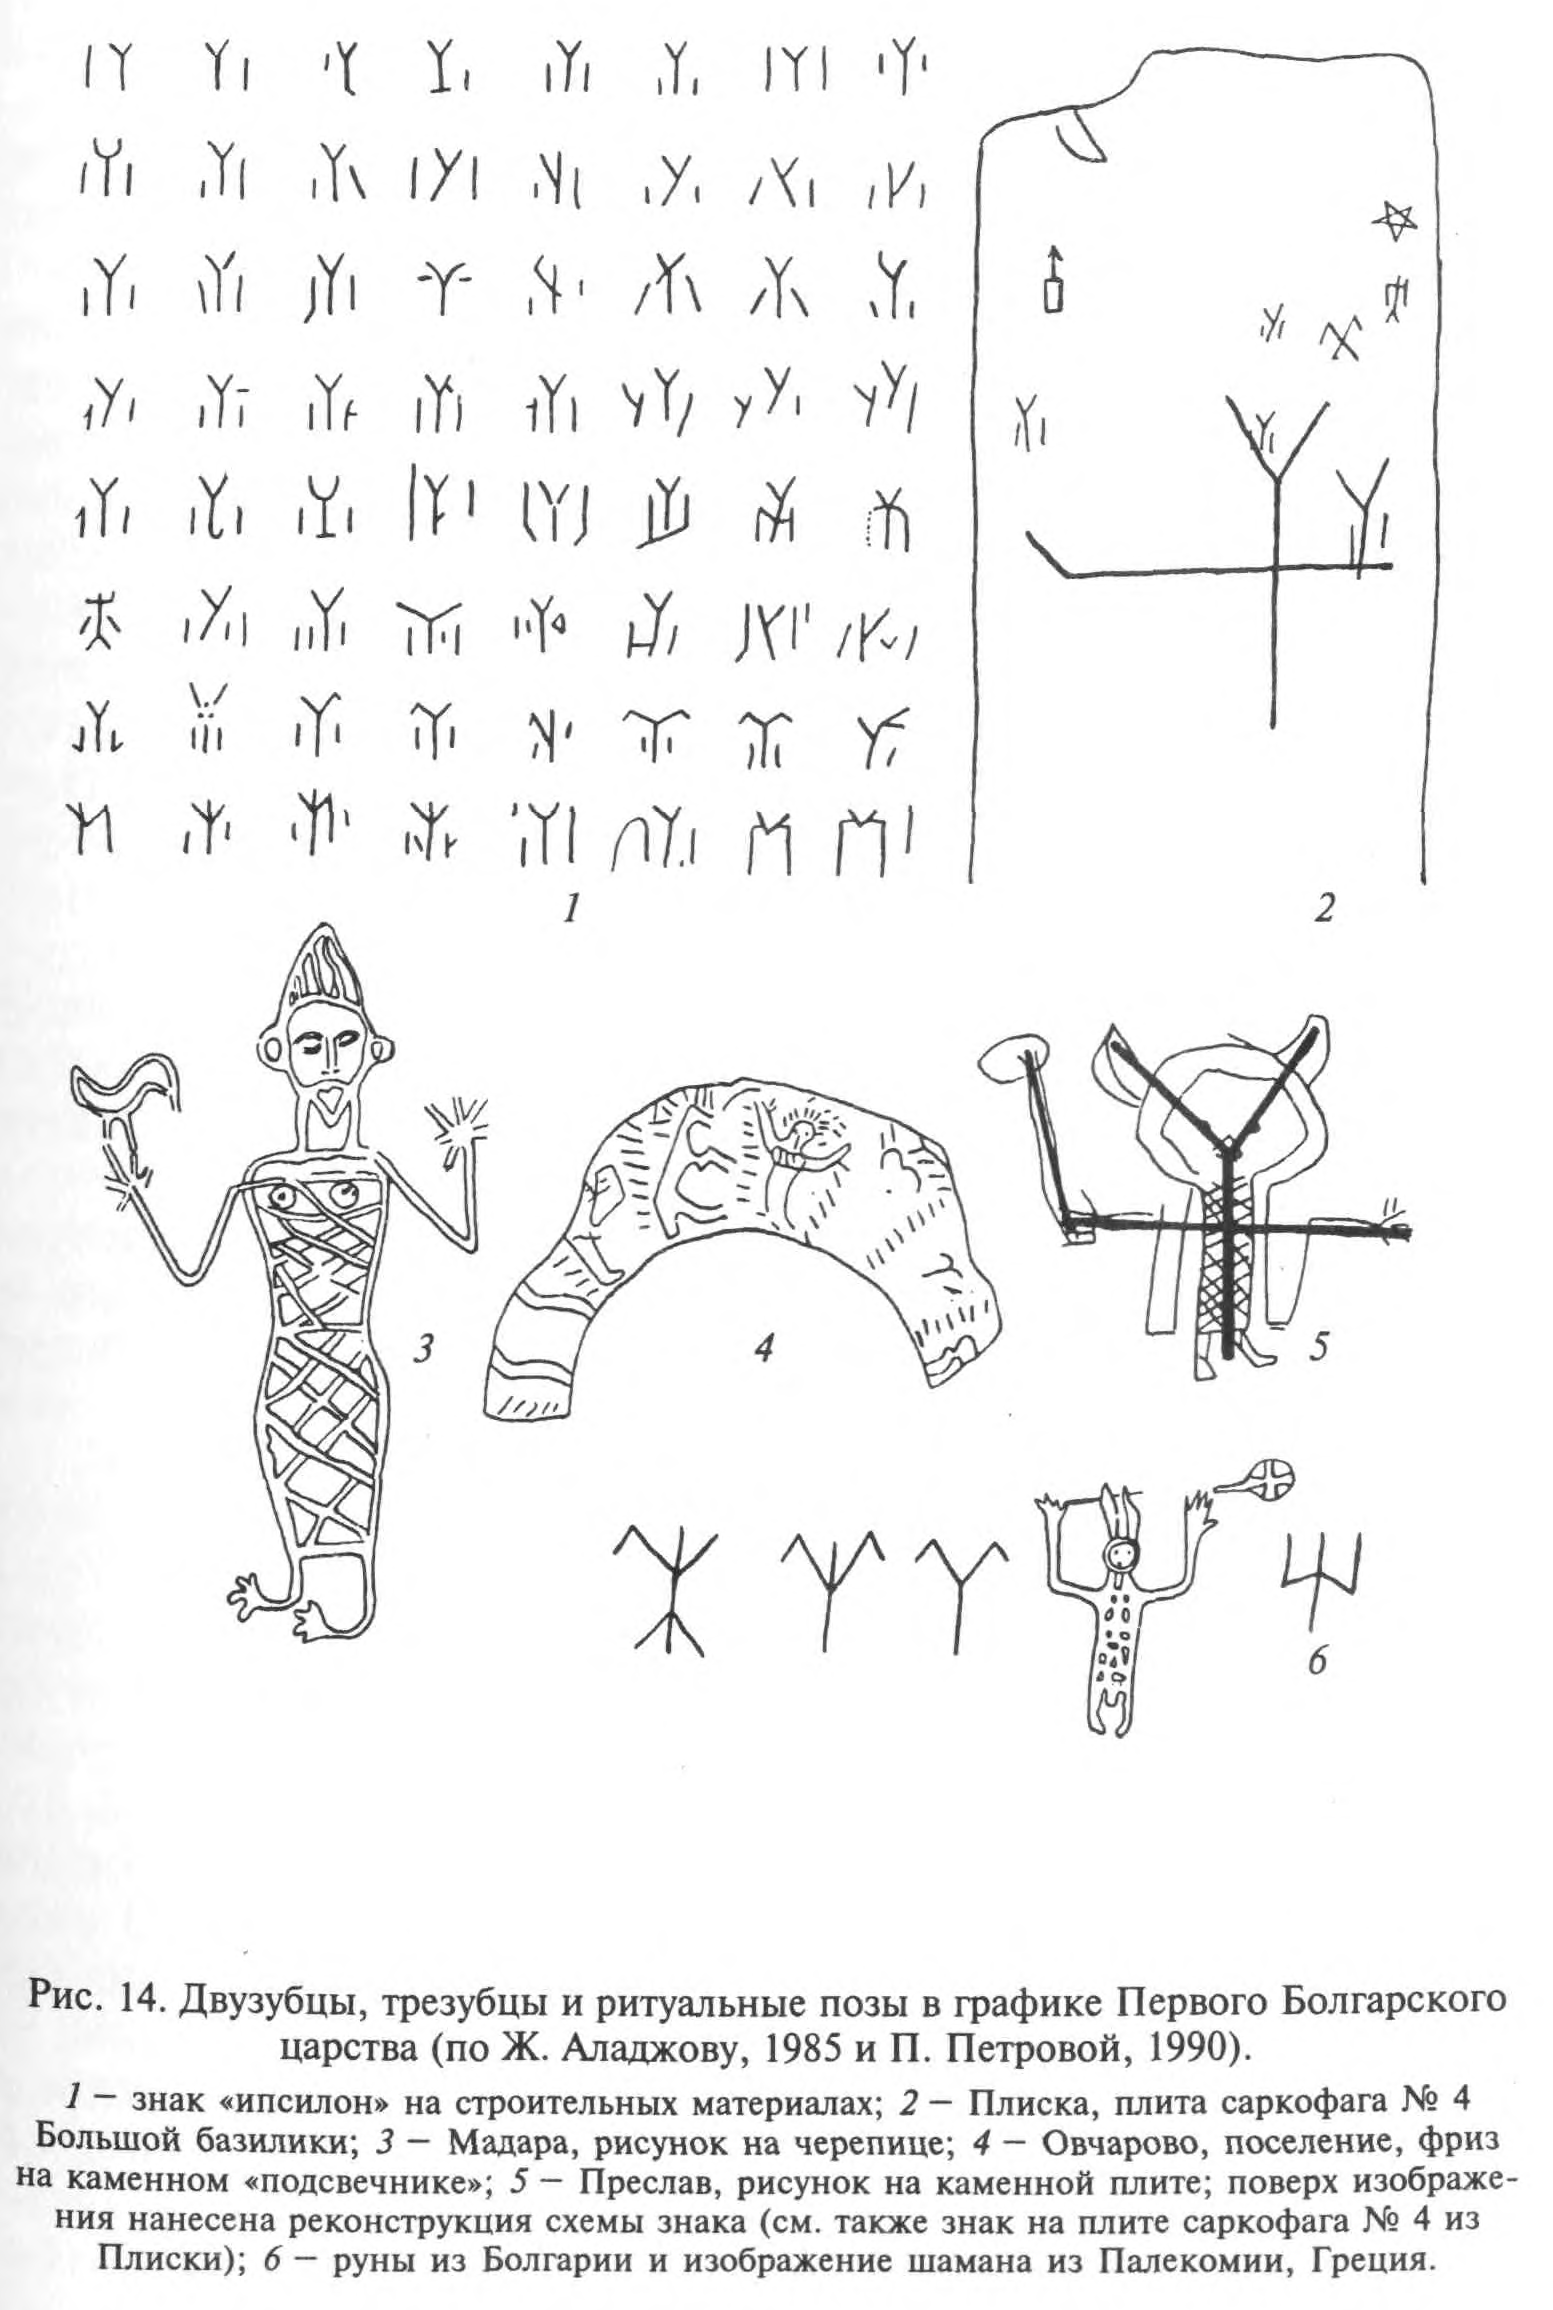 1
2
3
4
5
6
Рис. 14. Двузубцы, трезубцы и ритуальные позы в графике Первого Болгарского
царства (по Ж. Аладжову, 1985 и П. Петровой, 1990).
1 — знак «ипсилон» на строительных материалах; 2 — Плиска, плита саркофага № 4
Большой базилики; 3 — Мадара, рисунок на черепице; 4 — Овчарово, поселение, фриз
на каменном «подсвечнике»; 5 — Преслав, рисунок на каменной плите; поверх изображе-
ния нанесена реконструкция схемы знака (см. также знак на плите саркофага № 4 из
Плиски); 6 — руны из Болгарии и изображение шамана из Палекомии, Греция.